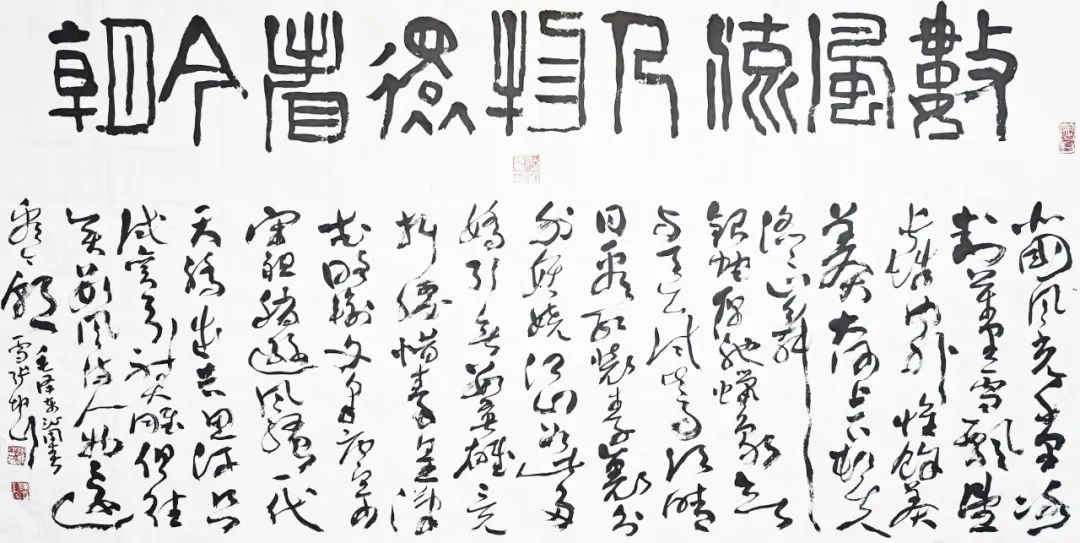 數風流人物還看今朝
北國風光千里冰
封萬里雪飄望
長城内外惟餘莽
莽大河上下頓失
滔滔山舞
銀蛇原馳蠟象欲
與天公試比高須晴
日看紅裝素裹分
外妖嬈江山如此多
嬌引無數英雄競
折腰惜秦皇漢
武略輸文采唐宗
宋祖稍遜風騷一代
天驕成吉思汗只
識彎弓射大雕俱往
矣數風流人物還
看今朝
毛澤東沁園春
雪張坤山